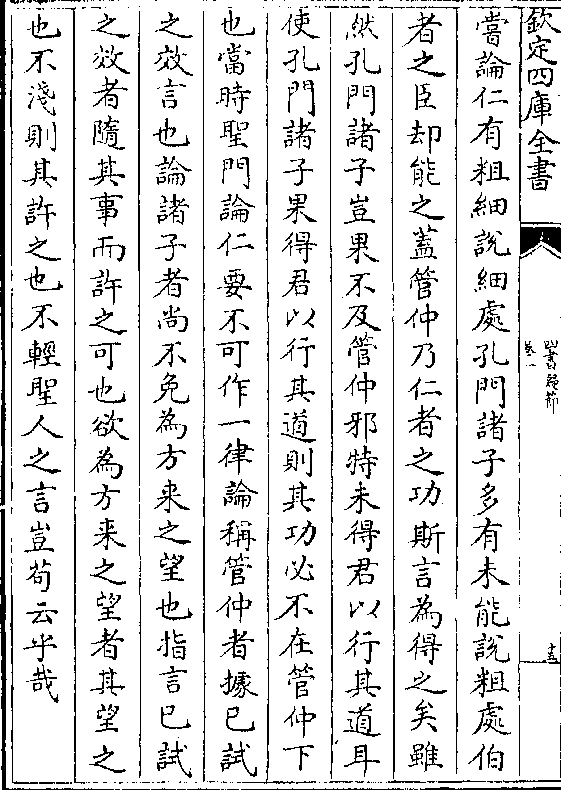 欽定四庫全書
嘗論仁有粗細說細處孔門諸子多有未能說粗處伯
者之臣却能之蓋管仲乃仁者之功斯言為得之矣雖
然孔門諸子豈果不及管仲邪特未得君以行其道耳
使孔門諸子果得君以行其道則其功必不在管仲下
也當時聖門論仁要不可作一律論稱管仲者據已試
之效言也論諸子者尚不免為方来之望也指言已試
之效者隨其事而許之可也欲為方来之望者其望之
也不淺則其許之也不輕聖人之言豈苟云乎哉